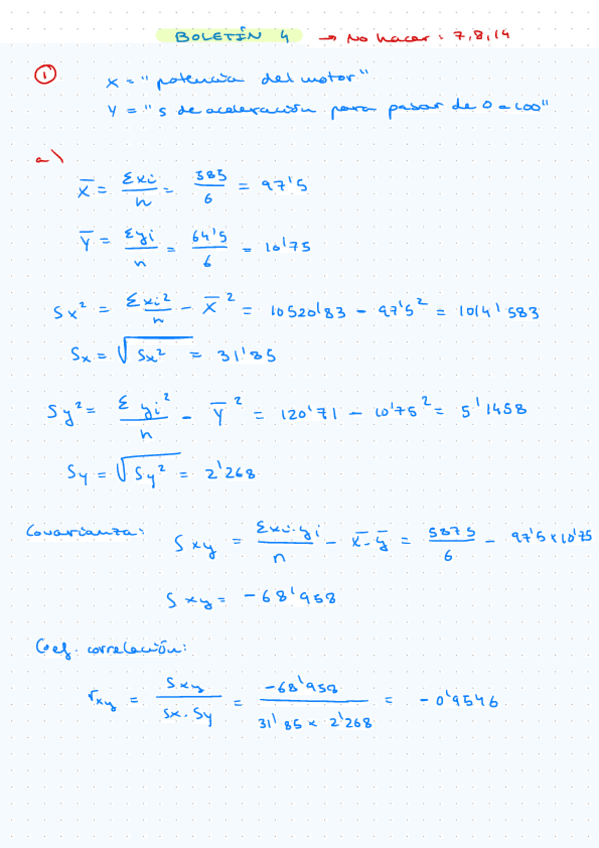 BOLETÍN 4 → No hacer: 7, 8, 14
① X = "potencia del motor"
Y = "s de aceleración para pasar de 0 a 100"
a)
X̅ = Σxi / n = 385 / 6 = 97'5
Y̅ = Σyi / n = 64'5 / 6 = 10'75
Sx² = Σxi² / n - X̅² = 10520'83 - 97'5² = 1014'583
Sx = √Sx² = 31'85
Sy² = Σyi² / n - Y̅² = 120'71 - 10'75² = 5'1458
Sy = √Sy² = 2'268
Covarianza: Sxy = Σxi·yi / n - x̅·y̅ = 5875 / 6 - 97'5 x 10'75
Sxy = -68'958
Coef. correlación:
rxy = Sxy / Sx·Sy = -68'958 / 31'85 x 2'268 = -0'9546